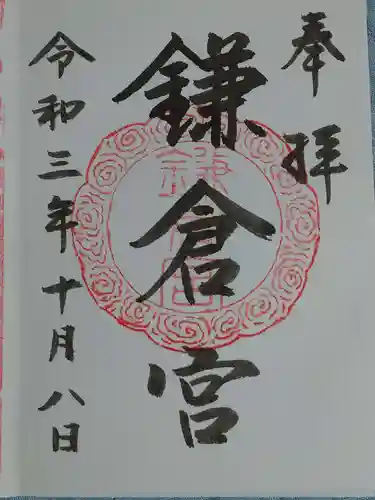 奉拝
鎌倉宮
鎌倉宮
令和三年十月八日